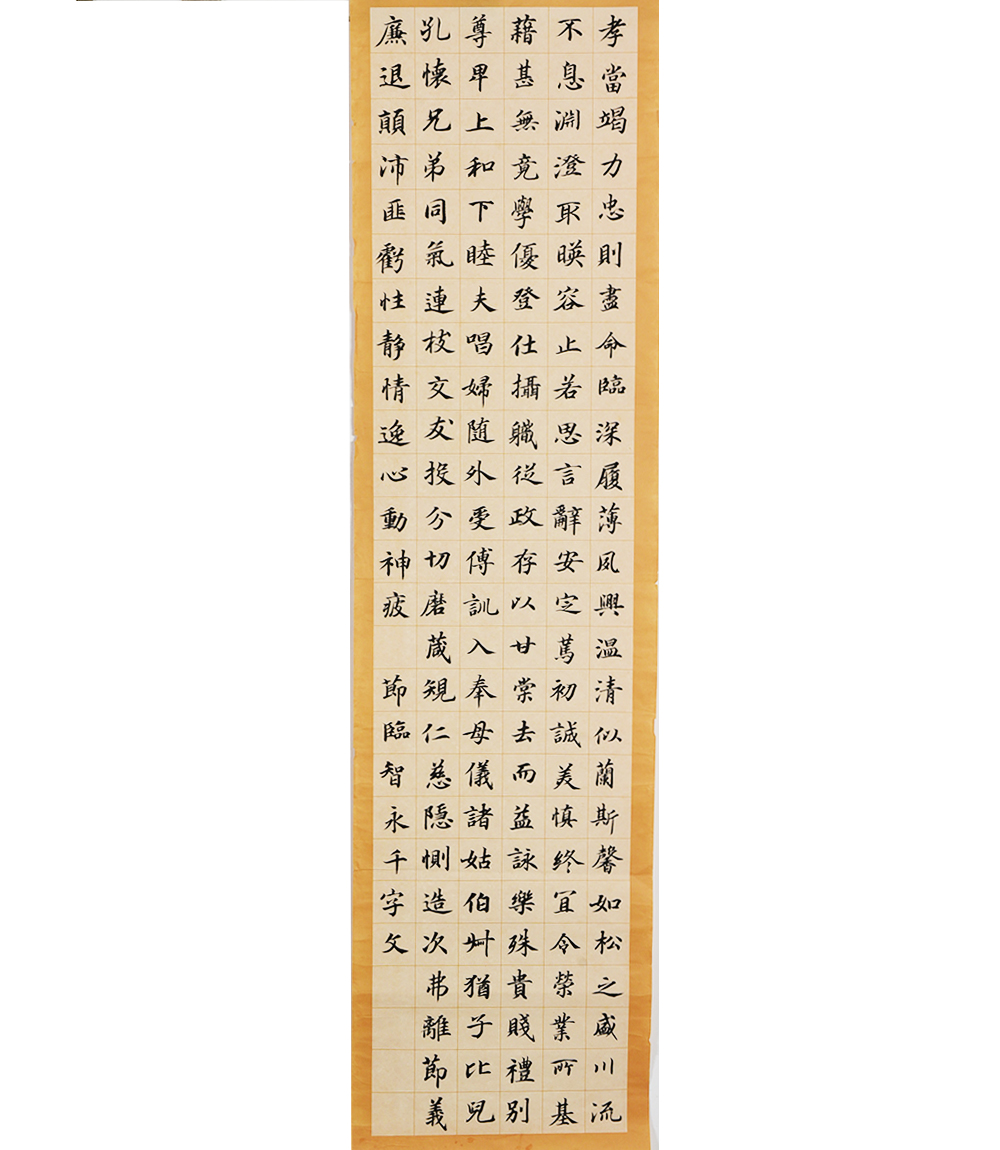 孝當竭力忠則盡命臨深履薄夙興温清似蘭斯馨如松之盛川流
不息淵澄取暎容止若思言辭安定篤初誠美慎終宜令榮業所基
藉甚無竟學優登仕攝職從政存以甘棠去而益詠樂殊貴賤禮別
尊卑上和下睦夫唱婦随外受傅訓入奉母儀諸姑伯叔猶子比兒
孔懷兄弟同氣連枝交友投分切磨箴規仁慈隱惻造次弗離節義
廉退顛沛匪虧性静情逸心動神疲 節臨智永千字文